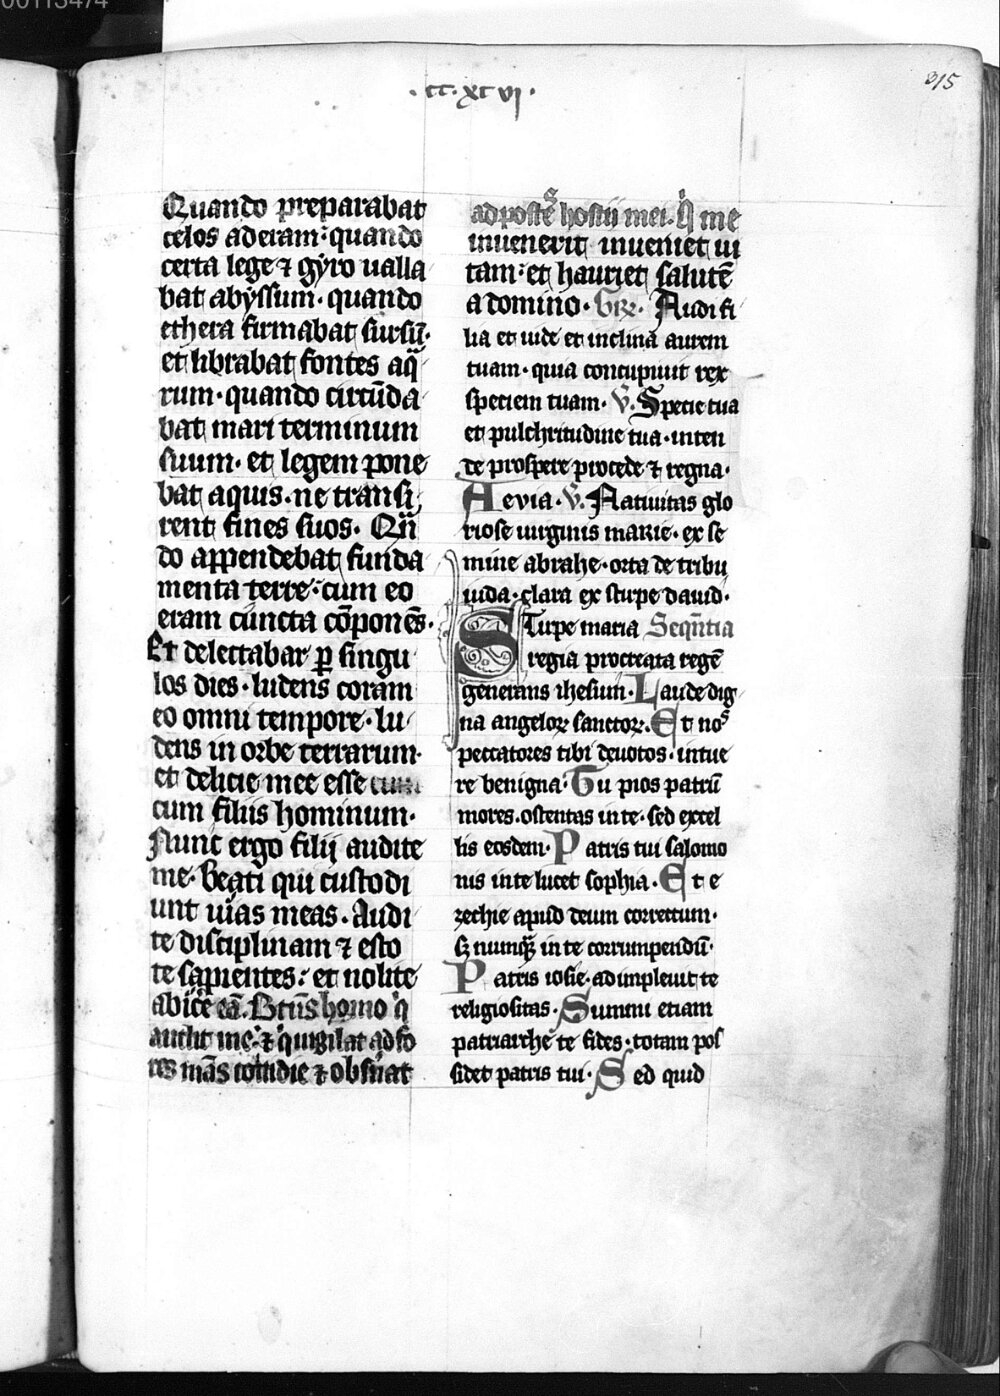 00113474
.cc.xc vi.
315
Quando preparabat
celos aderam: quando
certa lege ⁊ gyro ualla
bat abyssum. quando
ethera firmabat sursū.
et librabat fontes aq̄
rum. quando circūda
bat mari terminum
suum. et legem pone
bat aquis. ne transi
rent fines suos. Qn̄
do appendebat funda
menta terre: cum eo
eram cuncta cōponēs.
Et delectabar ꝑ singu
los dies. ludens coram
eo omni tempore. lu
dens in orbe terrarum.
et delicie mee esse cum
cum filiis hominum.
Nunc ergo filij audite
me. Beati qui custodi
unt uias meas. Audi
te disciplinam ⁊ esto
te sapientes: et nolite
abicē eā. Btūs homo q̇
audit me. ⁊ q̇ uigilat ad fo
res mās cottidie ⁊ obsūat
ad postē hostii mei. Q̇ me
inuenerit inueniet ui
tam: et hauriet salutē
a domino. Gꝶ. Audi fi
lia et uide et inclina aurem
tuam. quia concupiuit rex
speciem tuam. ℣. Specie tua
et pulchritudine tua. inten
de prospere procede ⁊ regna.
Aevia. ℣. Natiuitas glo
riose uirginis marie. ex se
mine abrahe. orta de tribu
iuda. clara ex stirpe dauid.
Stirpe maria Sequn̄tia
regia procreata regē
generans ihesum. Laude dig
na angeloꝝ sanctoꝝ. Et nos
peccatores tibi deuotos. intue
re benigna. Tu pios patrū
mores. ostentas in te. sed excel
lis eosdem. Patris tui salomo
nis in te lucet sophia. Et e
zechie apud deum correctum.
sꝫ nunqꝫ in te corrumpendū.
Patris iosie. adimpleuit te
religiositas. Summi etiam
patriarche te fides. totam pos
sidet patris tui. Sed quid